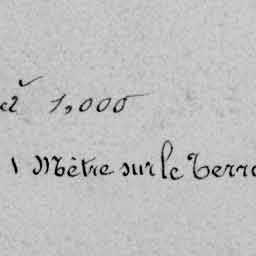 1,000
1 Mètre sur le Terra